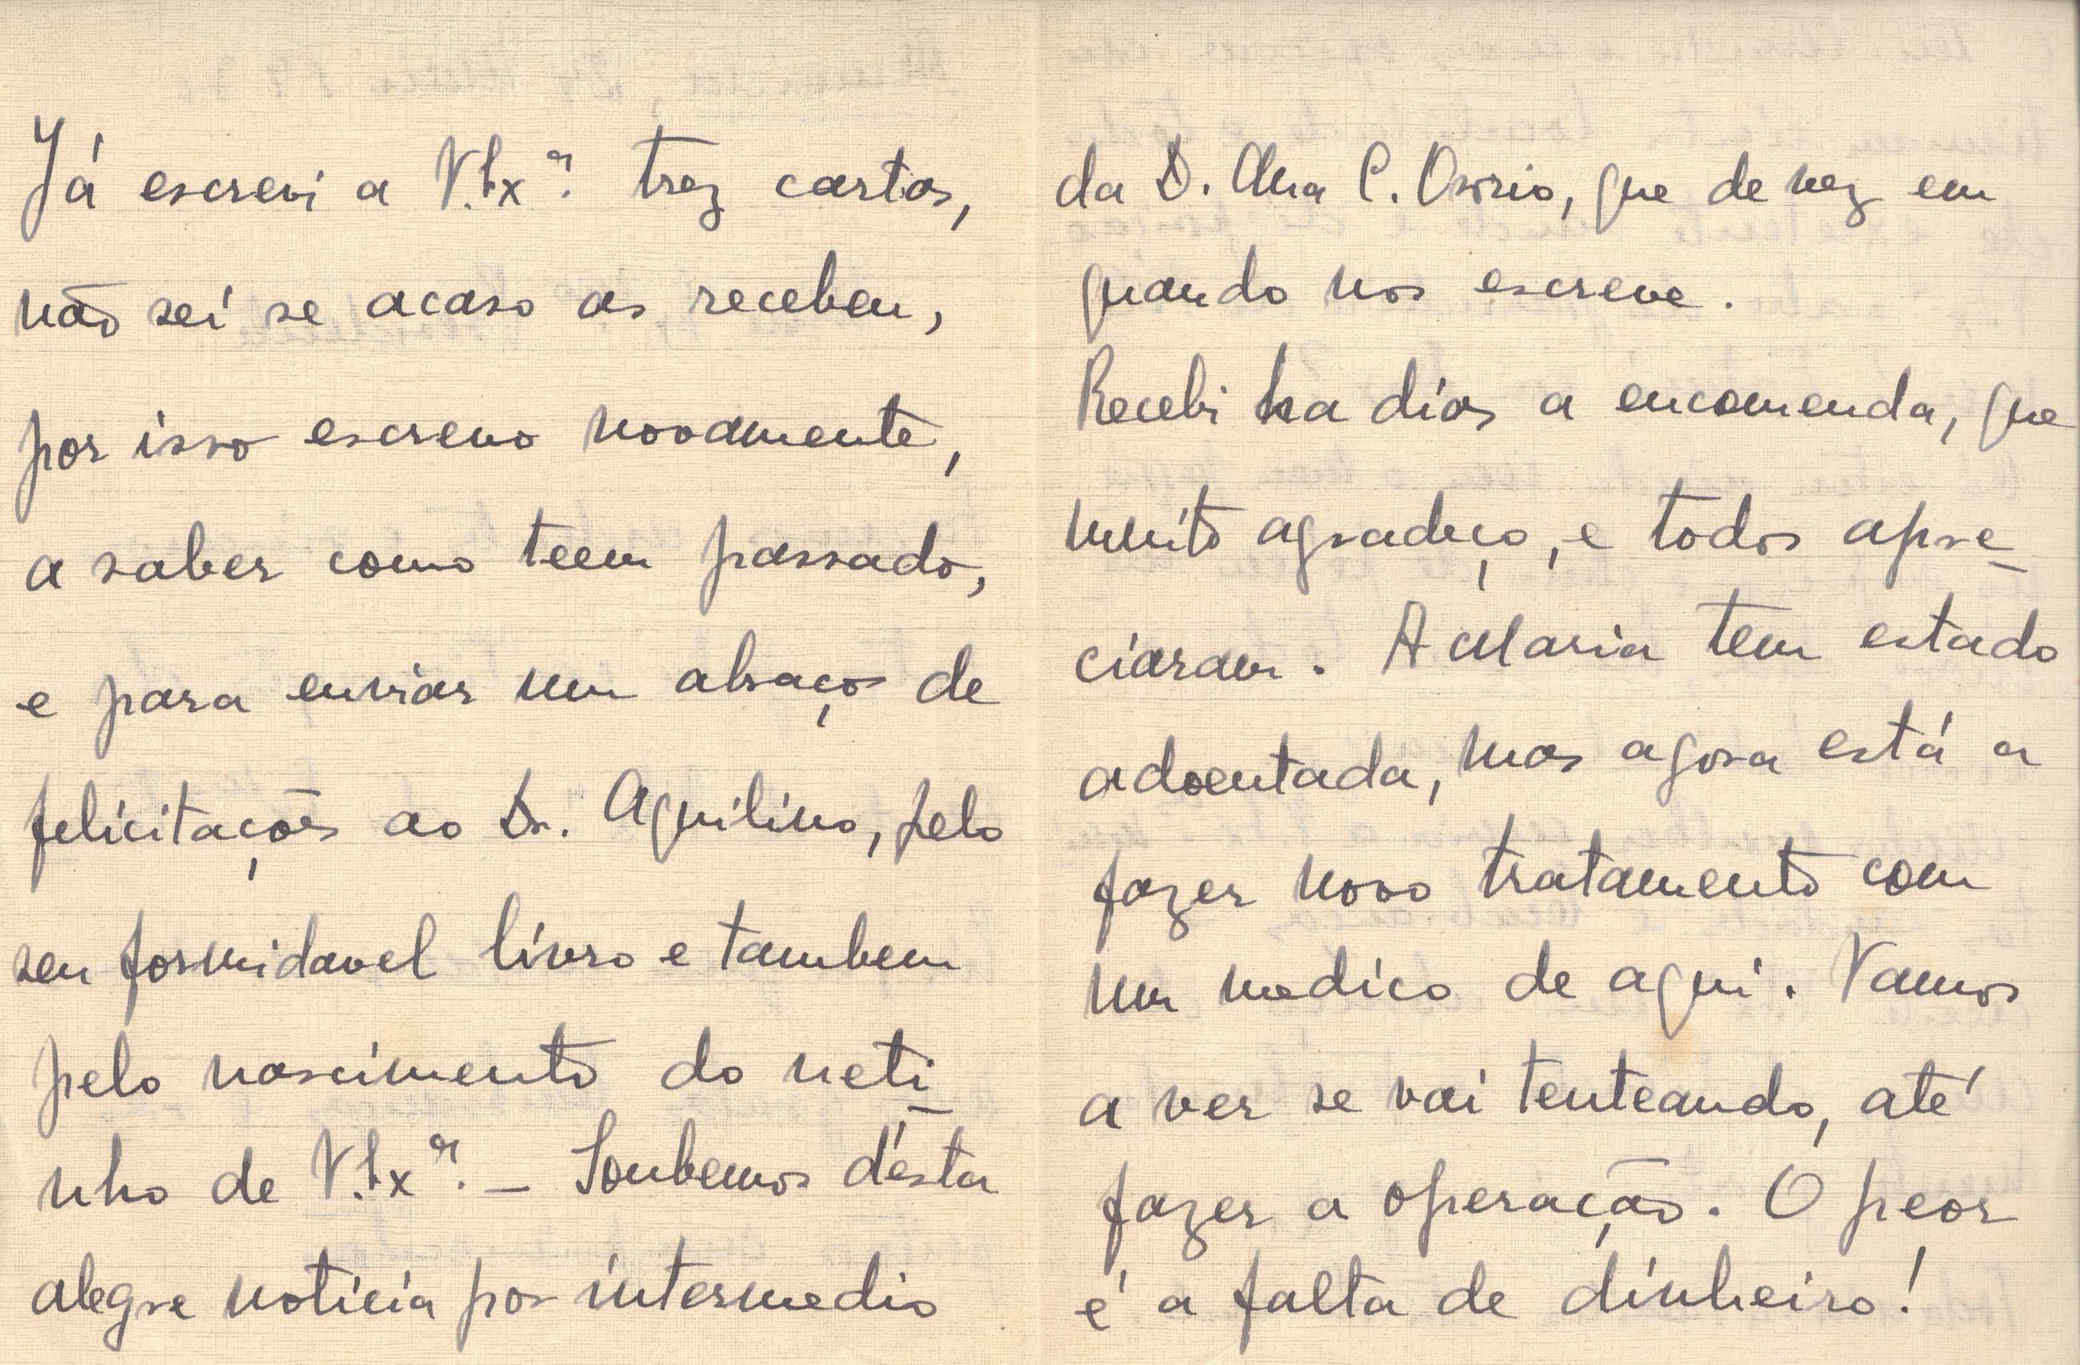 Já escrevi a V.Exª. trez cartas,
não sei se acaso as recebeu,
por isso escrevo novamente,
a saber como teem passado,
e para enviar um abraço de
felicitações ao Dr. Aquilino, pelo
seu formidavel livro e tambem
pelo nascimento do neti-
nho de V.Exª. - Soubemos d'esta
alegre noticia por intermedio
da D. Ana C. Osorio, que de vez em
quando nos escreve.
Recebi ha dias a encomenda, que
muito agradeço, e todos apre-
ciaram. A Maria tem estado
adoentada, mas agora está a
fazer novo tratamento com
um medico de aqui. Vamos
a ver se vai tenteando, até
fazer a operação. O peor
é a falta de dinheiro!